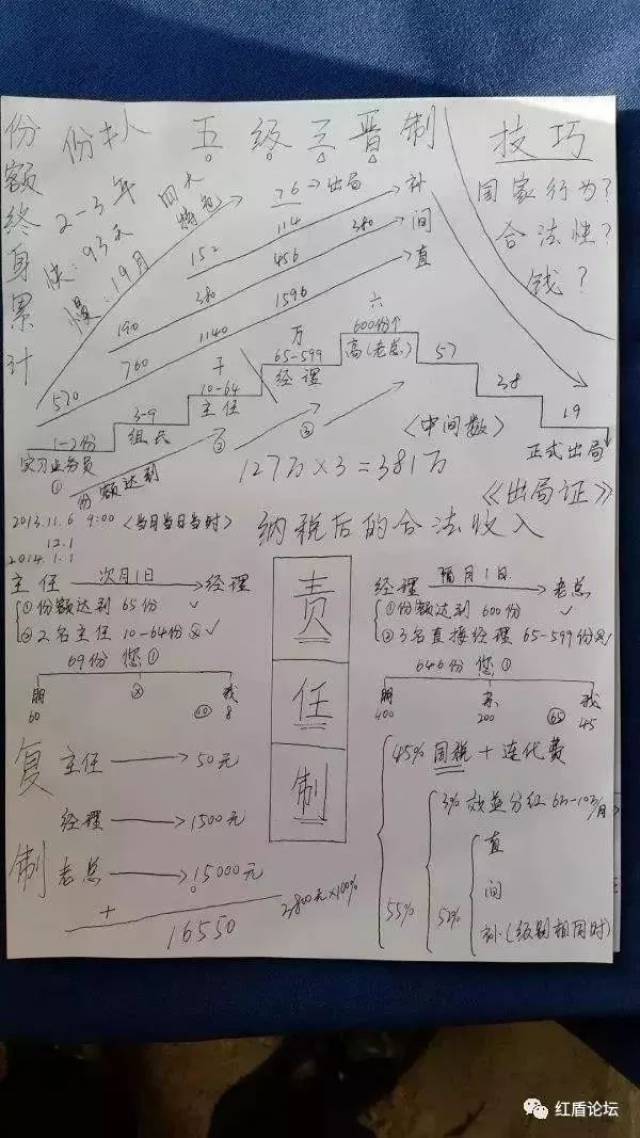 份额终身累计
份 扑人 五级三晋制
2-3年
快：93天
慢：19月
四大
技巧
国家行为？
合法性？
钱？
76→出局
114
152
补
380
456
380
190
间
1596
1140
760
570
直
六
600份个
高(老总)
万
65-599
经理
57
干
10-64
主任
38
3-9
组长
19
1-2份
实习业务员
①
份额达到
③
②
〈中间数〉
正式出局
127万×3=381万
《出局证》
2013.11.6 9:00〈当月当日当时〉
12.1
2014.1.1
纳税后的合法收入
主任 次月1日 经理
①份额达到65份 ✓
②2名主任10-64份 ✓
69份 您①
朋 我
60 8
责
任
制
经理 隔月1日 老总
①份额达到600份 ✓
②3名直接经理65-599份
646份 您①
朋 亲 我
400 200 45
复制
主任 50元
经理 1500元
老总 15000元
+
2800元×100%
16550
45% 国税+连代费
55%
3% 效益分红
52%
直
间
补(级别相同时)
红盾论坛